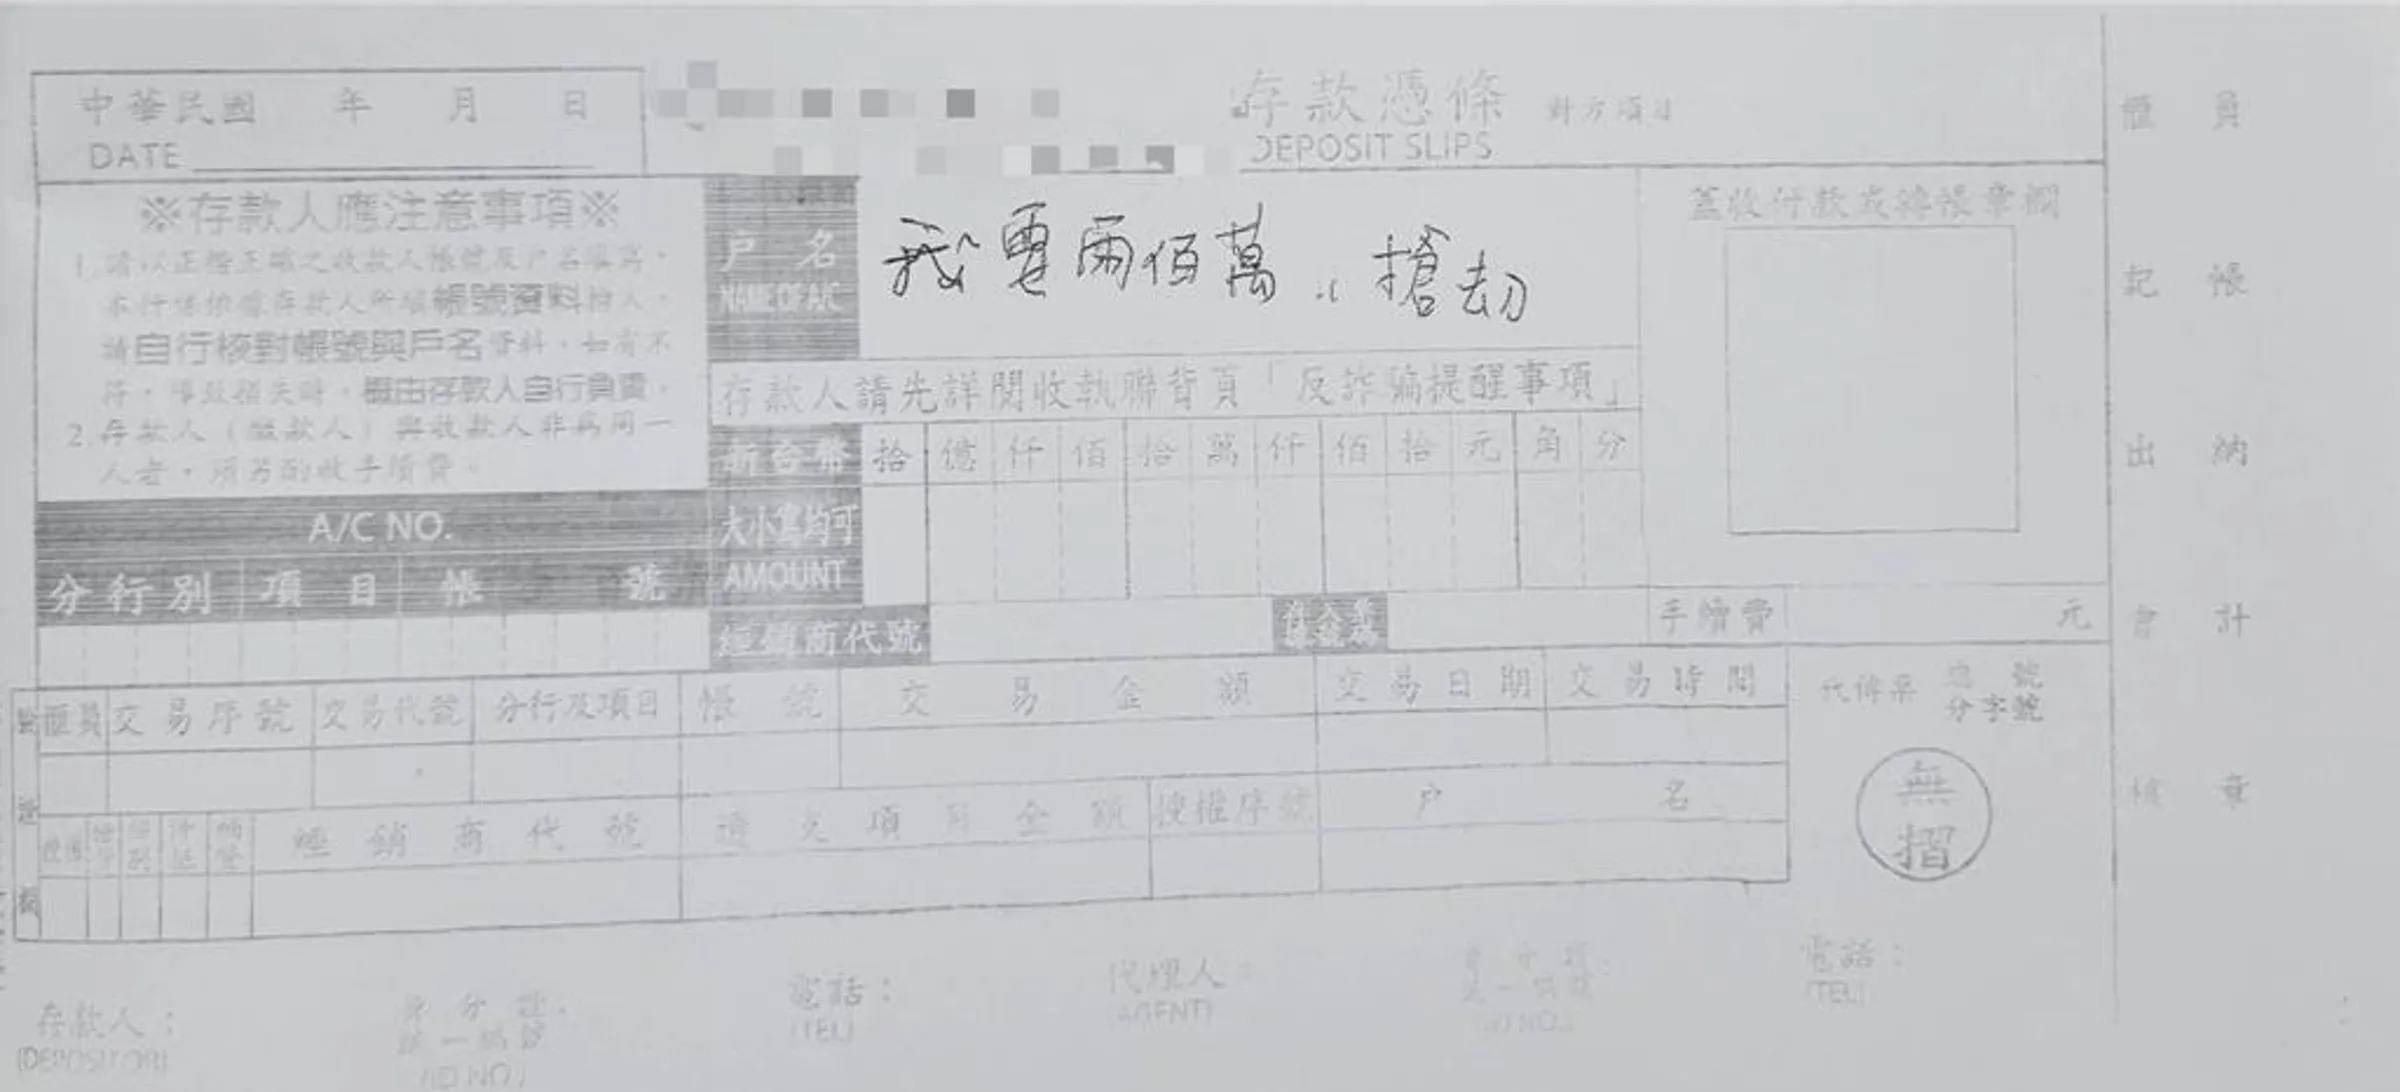 中華民國 年 月 日
DATE
存款憑條 對方項目
DEPOSIT SLIPS
※存款人應注意事項※
1.請以正楷正確之收款人帳號及戶名填寫,
本行係依據存款人所填帳號資料
請自行核對帳號與戶名資料,如有不
符,導致損失時,概由存款人自行負責。
2.存款人(繳款人)與收款人非為同一
人者,須另酌收手續費。
戶名
我要兩佰萬.. 搶劫
存款人請先詳閱收執聯背頁「反詐騙提醒事項」
蓋收付款或轉帳章欄
新台幣 拾 億 仟 佰 拾 萬 仟 佰 拾 元 角 分
大小寫均可
AMOUNT
A/C NO.
分行別 項目 帳號
經銷商代號
手續費 元
櫃員
記帳
出納
會計
核章
櫃員 交易序號 交易代號 分行及項目 帳號 交易金額 交易日期 交易時間
經銷商代號 項目金額 授權序號 戶名
代傳票 總號
分字號
無摺
存款人:
(DEPOSITOR)
身分證
統一編號
(ID NO.)
電話:
(TEL)
代理人:
(AGENT)
電話:
(TEL)